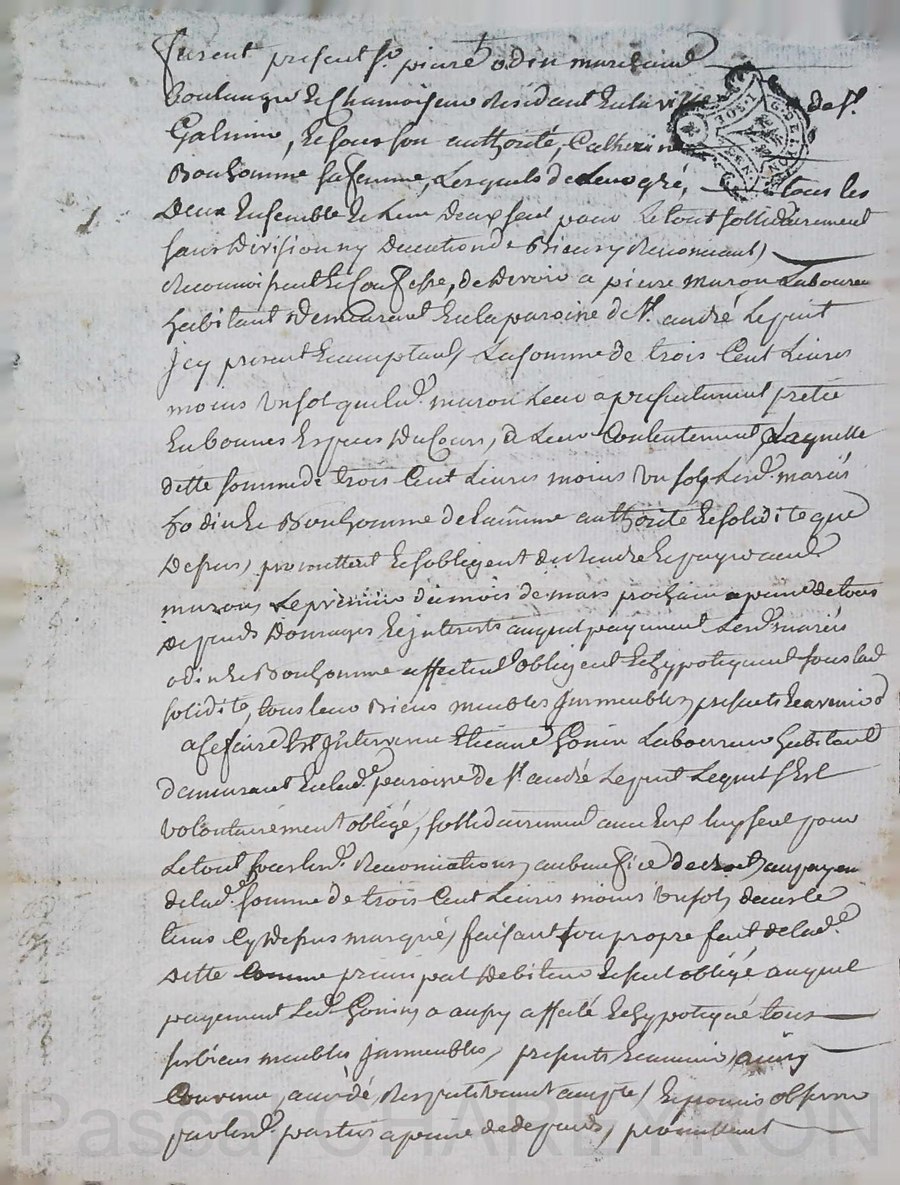 furent present Sr. pierre odin marchand
Boulanger et Chamoiseur Residant En la ville de St.
Galmier, et sous son authorité, Catherine
Bonhomme sa femme, Lesquels de Leur gré, tous les
Deux Ensemble et Leur deux seul pour Le tout sollidairement
sans Division ny
Reconnoissent et Confesse, de Devoir a pierre muron Laboureur
habitant Demeurant En la paroisse de St. andré Le puit
Jcy present Acceptant, La somme de trois Cent Livres
moins un sol que led. muron Leur a presentement prette
En bonnes Espèces Du Cours, a Leur Contentement, Laquelle
dette somme de trois Cent Livres moins un sol, Lesd. mariés
odin et Bonhomme de la même authorité et solidite que
Dessus, promettent et sobligent de Rendre et payer aud.
muron, Le premier du mois de mars prochain a peine de tous
Depends Domages et jnterests auquel payement Lesd. mariés
odin et Bonhomme affectent obligent et hypotequent sous lad.
solidité, tous Leur Biens meubles Jmmeubles, presents et avenir
a Ce faire Est Jntervenu Etienne Gonin Laboureur habitant
demeurant En lad. paroisse de St. andré Le puit Lequel sEst
volontairement obligé, sollidairement avec Eux luy seul pour
Le tout sous lesd. Renonciations, au payem.
de lad. somme de trois Cent Livres moins un sol, dans le
tems Cy Dessus marqué, faisant son propre fait de lad.
Dette Comme principal Debiteur Et seul obligé auquel
payement Led. Gonin a aussy affecté et hypotequé tous
ses biens meubles Jmmeubles, presents et avenir, ainsy
Convenu, accordé, Respectivement accepté, Et promis observer
par lesd. parties a peine de depends, promettant
Pascal CHAREYRON